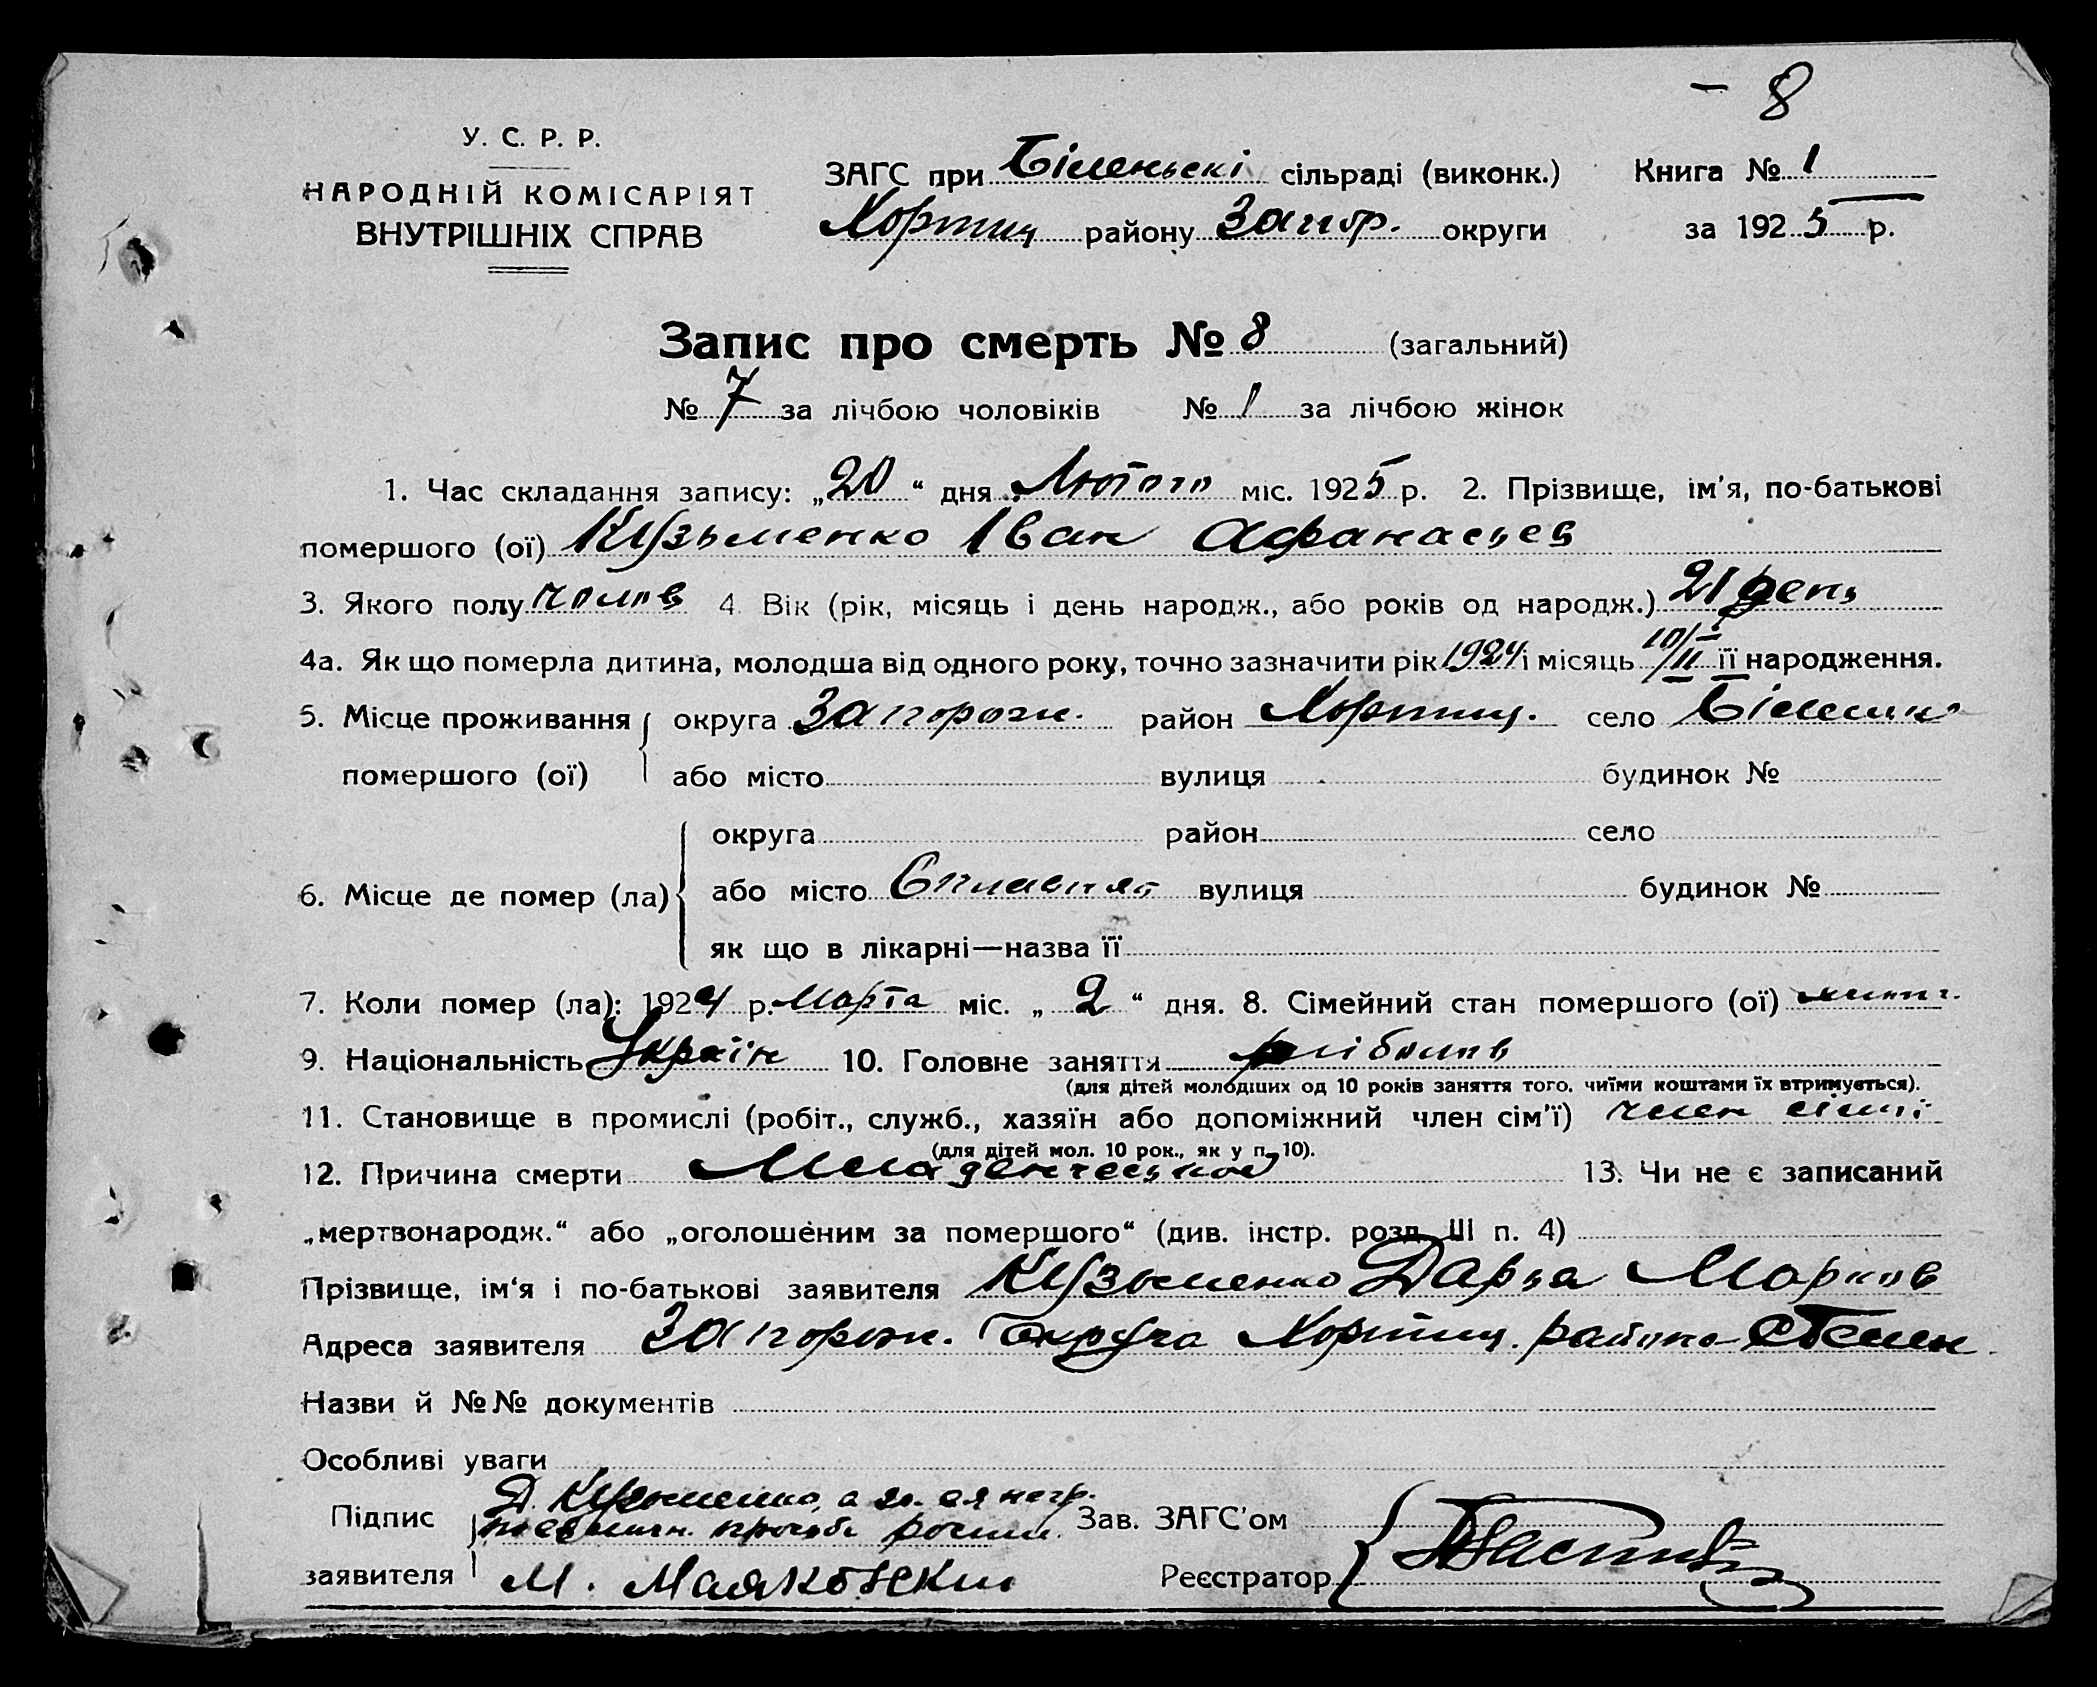 — 8
У. С. Р. Р.
НАРОДНІЙ КОМІСАРІЯТ
ВНУТРІШНІХ СПРАВ
ЗАГС при Біленьскі сільраді (виконк.) Книга № 1
Хортиц району Запор. округи за 1925 р.
Запис про смерть № 8 (загальний)
№ 7 за лічбою чоловіків № 1 за лічбою жінок
1. Час складання запису: „20“ дня Лютого міс. 1925 р. 2. Прізвище, ім'я, по-батькові
помершого (ої) Кузьменко Іван Афанасьев
3. Якого полу чолов 4. Вік (рік, місяць і день народж., або років од народж.) 21 день
4а. Як що померла дитина, молодша від одного року, точно зазначити рік 1924 і місяць 10/II її народження.
5. Місце проживання округа Запорож. район Хортиц. село
помершого (ої) або місто вулиця будинок №
округа район село
6. Місце де помер (ла) або місто вулиця будинок №
як що в лікарні—назва її
7. Коли помер (ла): 1924 р. Марта міс. „2“ дня. 8. Сімейний стан помершого (ої)
9. Національність Україн 10. Головне заняття хлібороб
(для дітей молодших од 10 років заняття того, чиїми коштами їх втримується).
11. Становище в промислі (робіт., служб., хазяїн або допоміжний член сім'ї) член сімї
(для дітей мол. 10 рок., як у п. 10).
12. Причина смерти Младенческой 13. Чи не є записаний
„мертвонародж.“ або „оголошеним за помершого“ (див. інстр. розд. III п. 4)
Прізвище, ім'я і по-батькові заявителя Кузьменко Дарья Марков
Адреса заявителя Запорож. Округа Хортиц. района с Белен
Назви й №№ документів
Особливі уваги
Підпис Д. Кузьменко, а за ея негр.
Зав. ЗАГС'ом
заявителя М. Маяковский Реєстратор